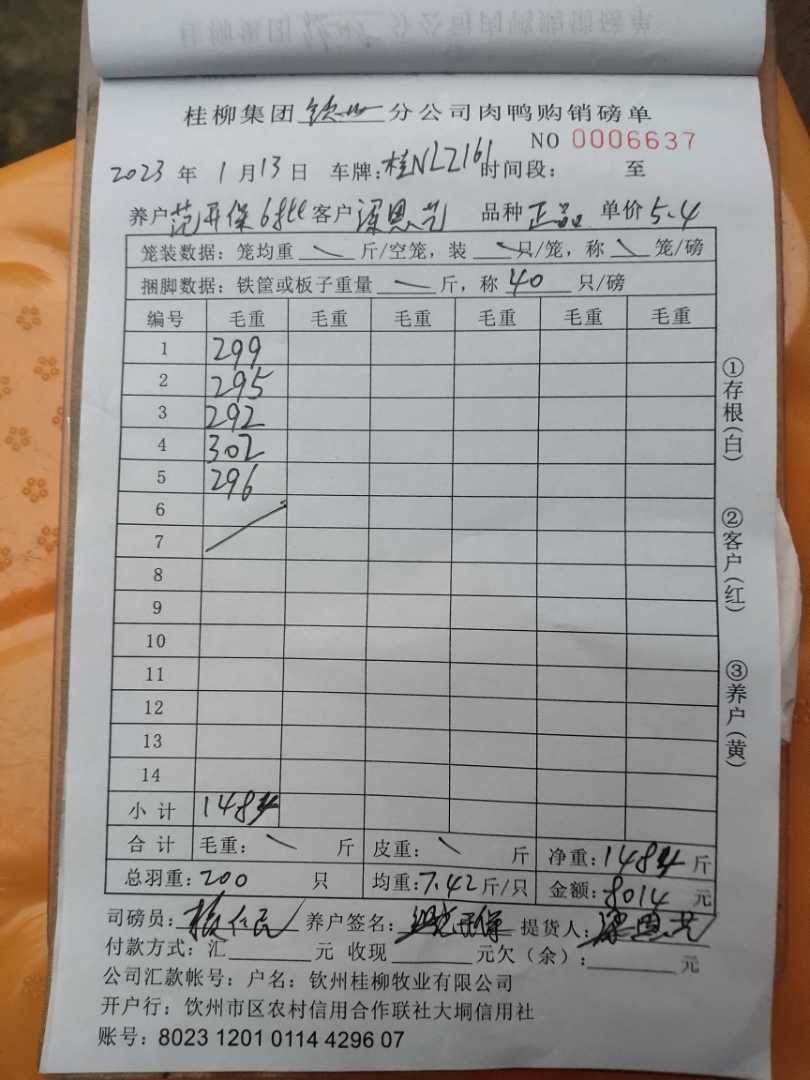 桂柳集团 钦州 分公司肉鸭购销磅单
NO 0006637
2023 年 1 月 13 日 车牌:桂NLZ161 时间段: 至
养户 范开保 客户 梁恩艺 品种 正品 单价 5.4
笼装数据: 笼均重 \ 斤/空笼, 装 \ 只/笼, 称 \ 笼/磅
捆脚数据: 铁筐或板子重量 \ 斤, 称 40 只/磅
编号 毛重 毛重 毛重 毛重 毛重 毛重
1 299
2 295
3 292
4 302
5 296
6
7
8
9
10
11
12
13
14
小计 1484
合计 毛重: \ 斤 皮重: \ 斤 净重: 1484 斤
总羽重: 200 只 均重: 7.42 斤/只 金额: 8014 元
司磅员: 养户签名: 范开保 提货人: 梁恩艺
付款方式: 汇 元 收现 元欠(余): 元
公司汇款帐号: 户名: 钦州桂柳牧业有限公司
开户行: 钦州市区农村信用合作联社大垌信用社
账号: 8023 1201 0114 4296 07
①存根(白)
②客户(红)
③养户(黄)